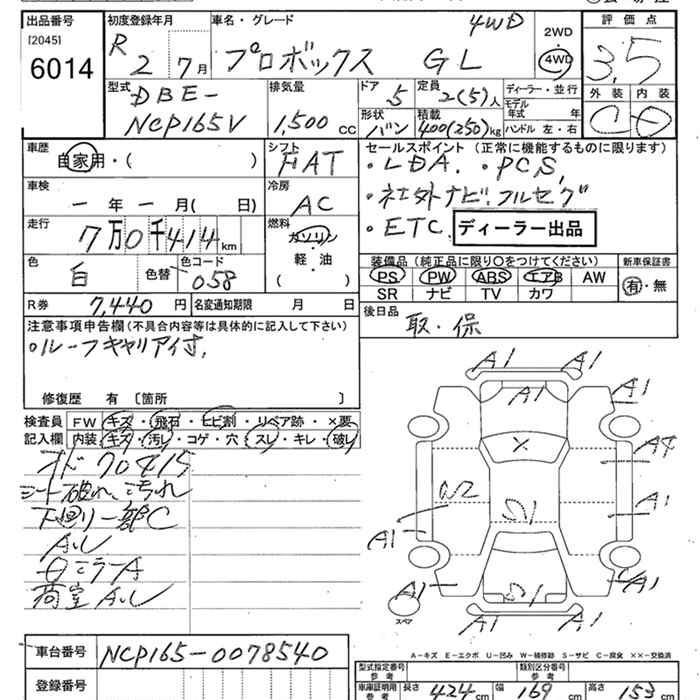 出品番号 初度登録年月 車名・グレード 4WD 2WD 評価点
[2045] R 2 7月 プロボックス GL 4WD 3.5
6014
型式 DBE- 排気量 ドア 5 定員 2(5)人 ディーラー・並行 外装 内装
NCP165V 1,500cc 形状 バン 積載 400(250)kg モデル年式 年 C D
ハンドル 左・右
車歴 シフト セールスポイント (正常に機能するものに限ります)
自家用・( ) FAT ・LDA. ・PCS,
車検 冷房 ・社外ナビ.フルセグ
ー年ー月( 日) AC ・ETC. ディーラー出品
走行 燃料
7万0千414km ガソリン
軽・油
( )
色 白 色替 色コード 058
装備品 (純正品に限り○をつけてください) 新車保証書
PS PW ABS エアB AW 有・無
SR ナビ TV カワ
R券 7,440円 名変通知期限 月 日
後日品 取・保
注意事項申告欄(不具合内容等は具体的に記入して下さい)
○ルーフキャリア付,
修復歴 有 〔箇所 〕
検査員 FW キズ・飛石・ヒビ割・リペア跡・×要
記入欄 内装 キズ・汚レ・コゲ・穴・スレ・キレ・破レ
オド 70415
シート破れ、汚れ
下廻り一部C
AUレ
ロミラーA
荷室 AUレ
A1 A1
A1 A1
X A4
W2 U1 A1
A1
A1 U1 A1
スペア A1 A1
A-キズ E-エクボ U-凹み W-補修跡 S-サビ C-腐食 ××-交換済
車台番号 NCP165-0078540
登録番号
型式指定番号 参考 類別区分番号 参考
車庫証明用 参考 長さ 424cm 幅 169cm 高さ 153cm